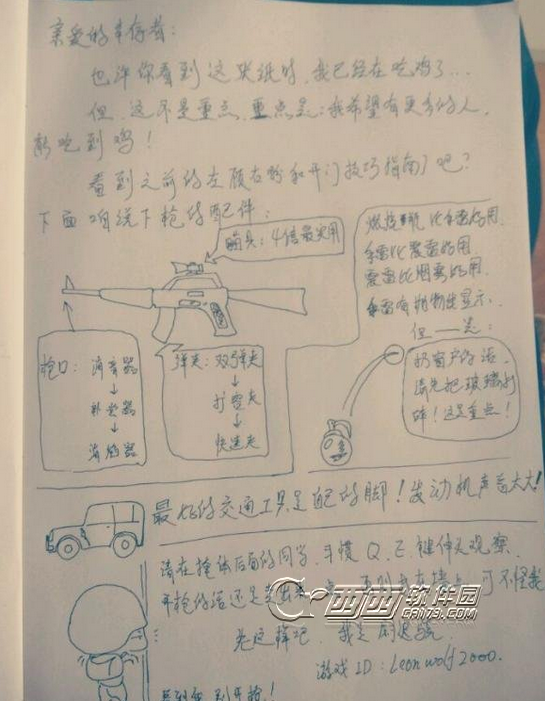 亲爱的幸存者：
也许你看到这张纸时，我已经在吃鸡了...
但，这不是重点，重点是：我希望有更多的人，
能吃到鸡！
看到之前的左顾右盼和开门技巧指南了吧？
下面咱说下枪的配件：
瞄具：4倍最实用
燃烧瓶比手雷好用
手雷比震雷好用
震雷比烟雾好用
手雷有抛物线显示，
但——是：
扔窗户的话，
请先把玻璃打
碎！这是重点！
枪口：消音器
↓
补偿器
↓
消焰器
弹夹：双弹夹
↓
扩容夹
↓
快速夹
最好的交通工具是自己的脚！发动机声音太大！
请在掩体后面的同学，习惯Q、E键伸头观察，
开枪的话还是走出来一点，否则打在墙上，可不怪我
先这样吧，我是
西西软件园
CR173.COM
游戏ID：Leonwolf2000.